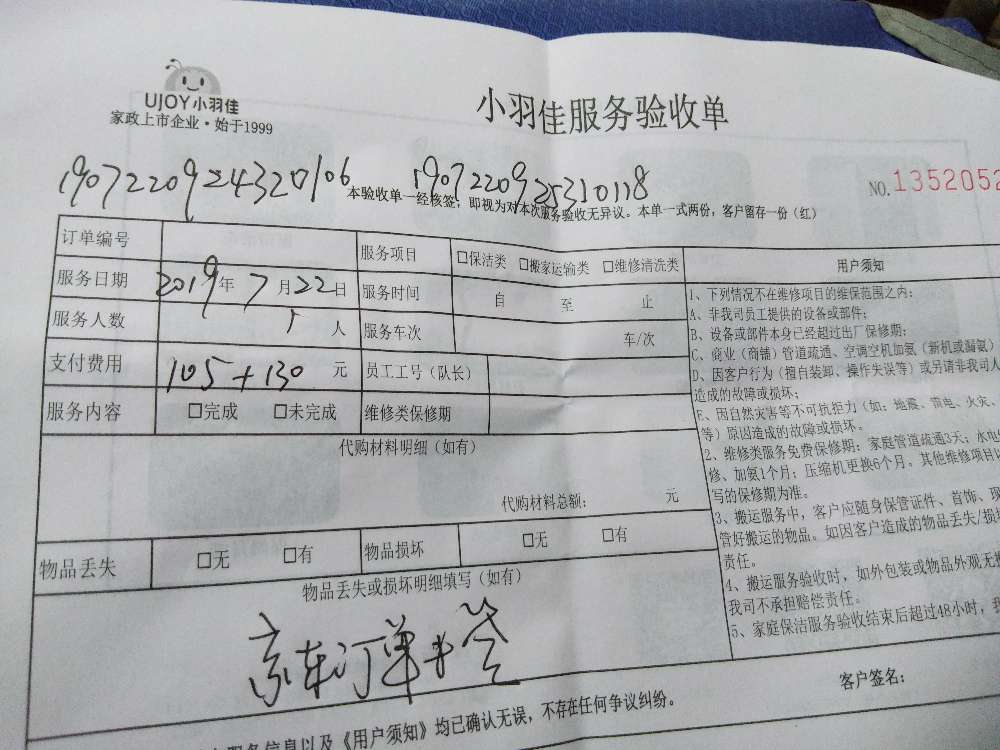 UJOY小羽佳
家政上市企业·始于1999
小羽佳服务验收单
1907220924320106 1907220925310118
本验收单一经核签，即视为对本次服务验收无异议。本单一式两份，客户留存一份（红）
NO.1352052
订单编号 服务项目 □保洁类 □搬家运输类 □维修清洗类
服务日期 2019年7月22日 服务时间 自 至 止
服务人数 1人 服务车次 车/次
支付费用 105+130元 员工工号（队长）
服务内容 □完成 □未完成 维修类保修期
代购材料明细（如有）
代购材料总额： 元
物品丢失 □无 □有 物品损坏 □无 □有
物品丢失或损坏明细填写（如有）
京东订单
用户须知
1、下列情况不在维修项目的维保范围之内：
A、非我司员工提供的设备或部件；
B、设备或部件本身已经超过出厂保修期；
C、商业（商铺）管道疏通、空调空机加氨（新机或漏氨）
D、因客户行为（擅自装卸、操作失误等）或另请非我司人
造成的故障或损坏；
E、因自然灾害等不可抗拒力（如：地震、雷电、火灾、
等）原因造成的故障或损坏。
2、维修类服务免费保修期：家庭管道疏通3天；水电
修、加氨1个月；压缩机更换6个月。其他维修项目以
写的保修期为准。
3、搬运服务中，客户应随身保管证件、首饰、现
管好搬运的物品。如因客户造成的物品丢失/损
责任。
4、搬运服务验收时，如外包装或物品外观无
我司不承担赔偿责任。
5、家庭保洁服务验收结束后超过48小时，我
服务信息以及《用户须知》均已确认无误，不存在任何争议纠纷。
客户签名：